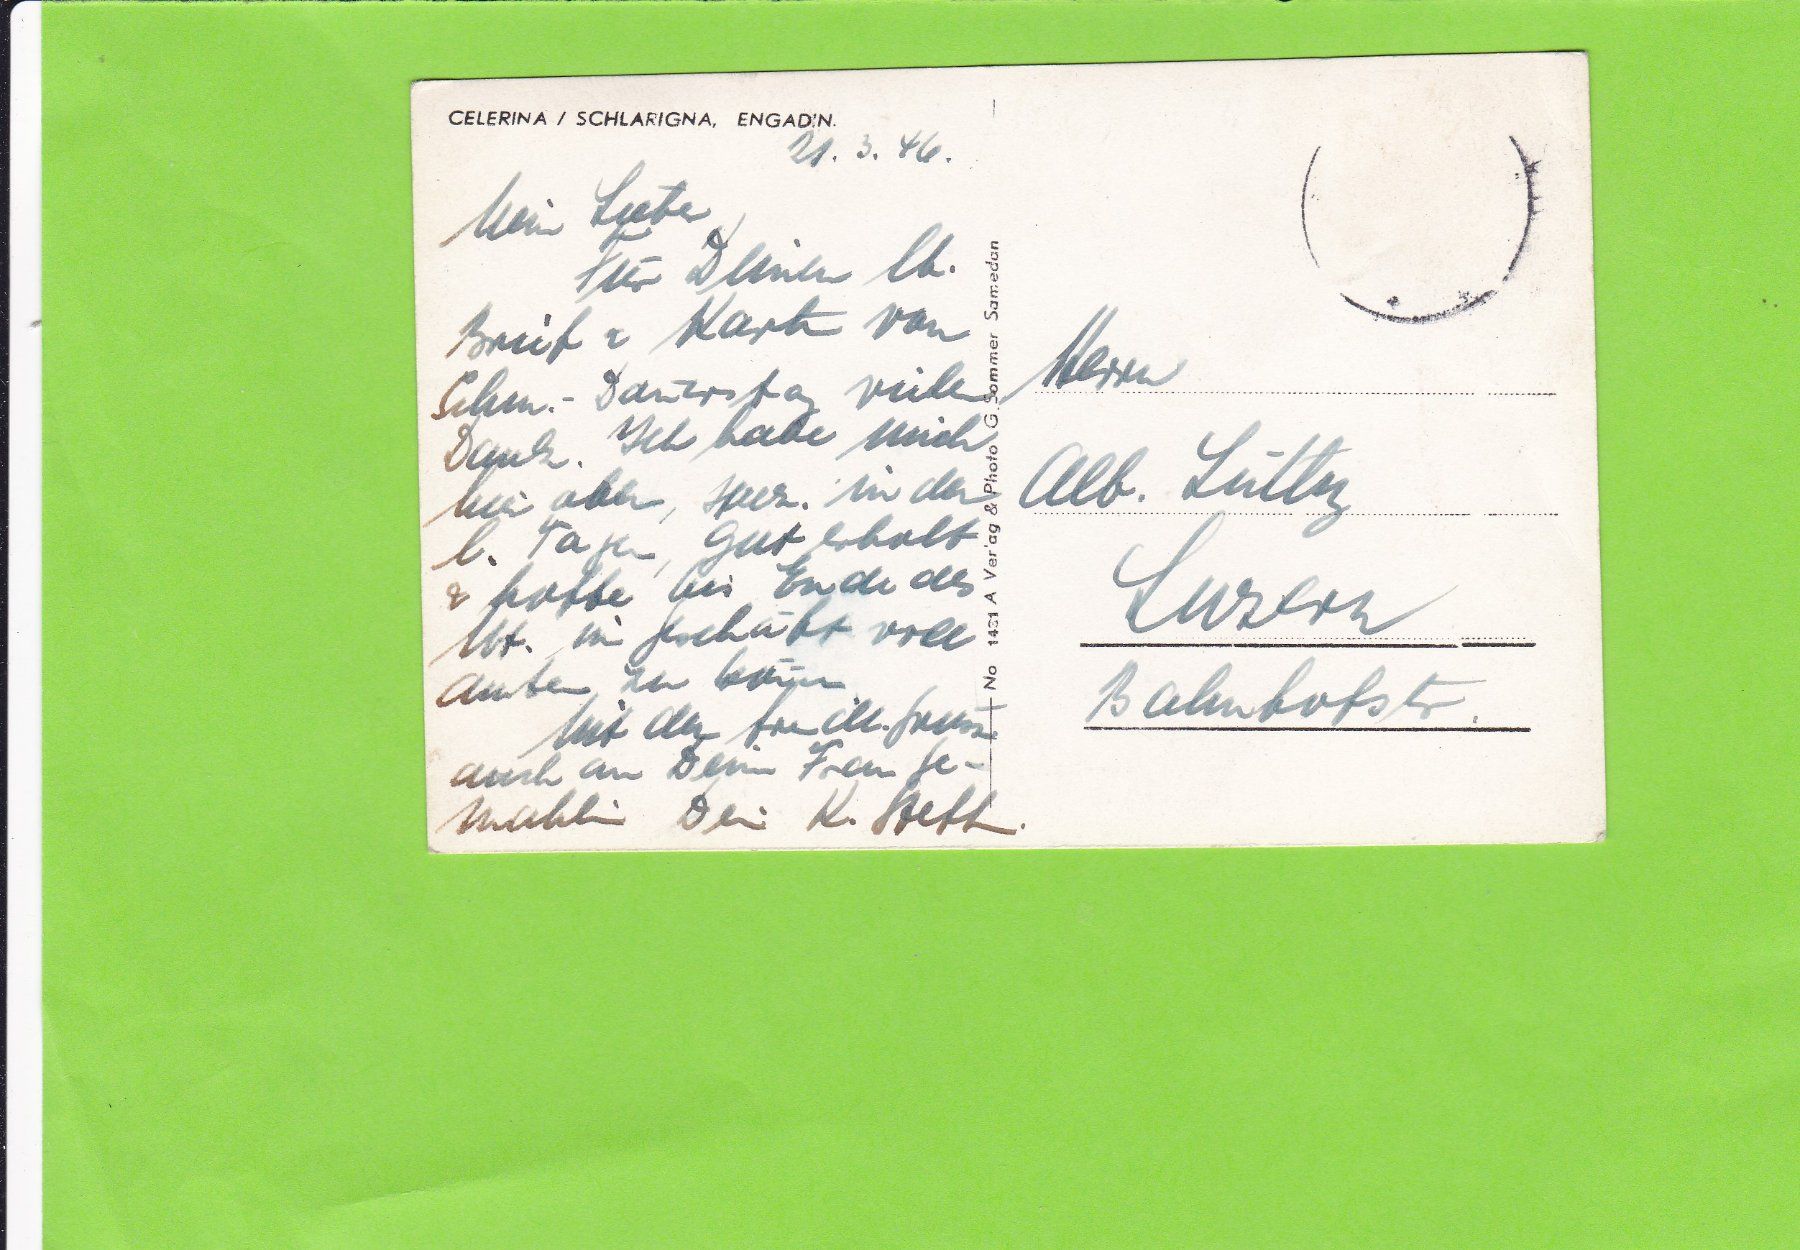 CELERINA / SCHLARIGNA, ENGADIN.
21. 3. 46.
Mein Lieber,
Für Deinen lb.
Brief & Karte von
Schm. - Donnerstag vielen
Dank. Ich habe mich
hier oben, spez. in den
l. Tagen, gut erholt
& hoffe bis Ende des
Mt. im Geschäft voll
zu
Mit den freundl.
auch an Deine Frau Ge-
mahlin Dein K.
No 1431 A Verlag & Photo G. Sommer Samedan
Herrn
Alb.
Luzern
Bahnhofstr.